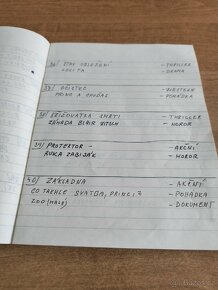 36/ STAV OBLEŽENÍ - THRILLER
LOLITA - DRAMA
37/ - WESTERN
PRINC A CHUĎAS - POHÁDKA
38/ KŘIŽOVATKA SMRTI - THRILLER
ZÁHADA BLAIR WITCH - HOROR
39/ PROTEKTOR - - AKČNÍ
RUKA ZABIJÁK - HOROR
40/ ZÁKLADNA - AKČNÍ
CO TAKHLE SVATBA, PRINCI? - POHÁDKA
ZOO (MALÝ) - DOKUMENT